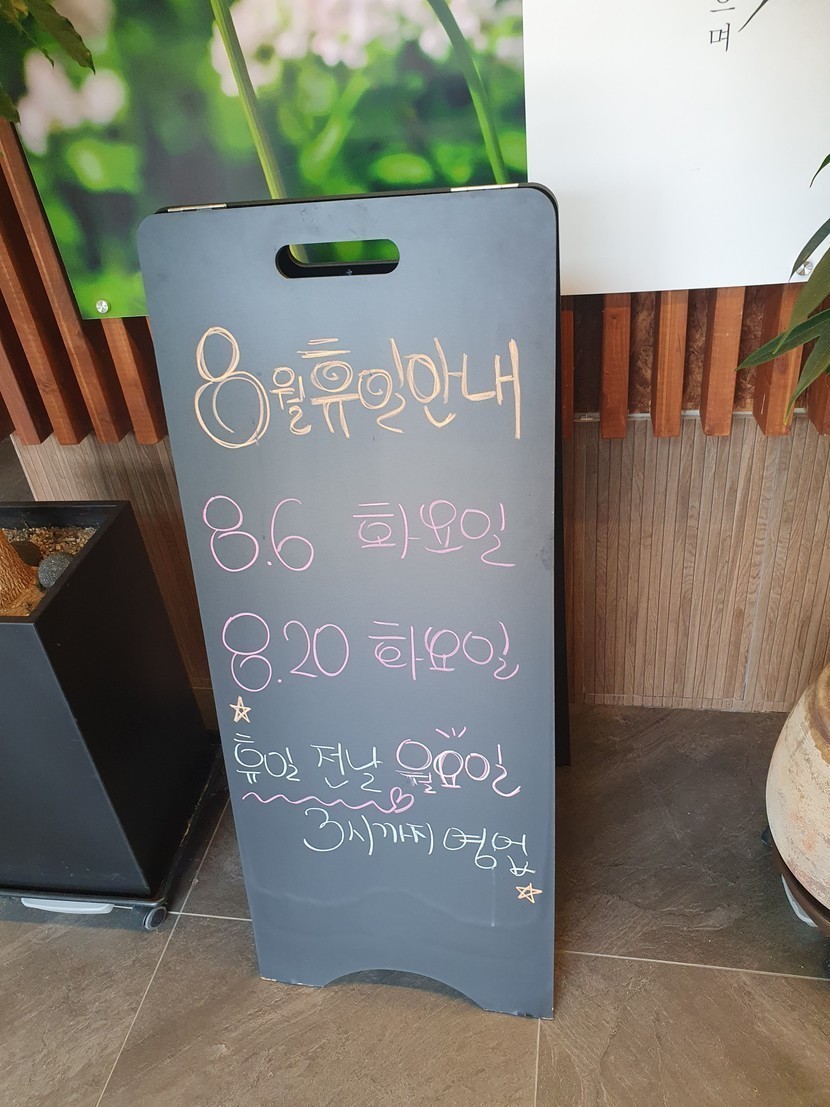 으며
8월휴일안내
8.6 화요일
8.20 화요일
휴일 전날 월요일
3시까지 영업